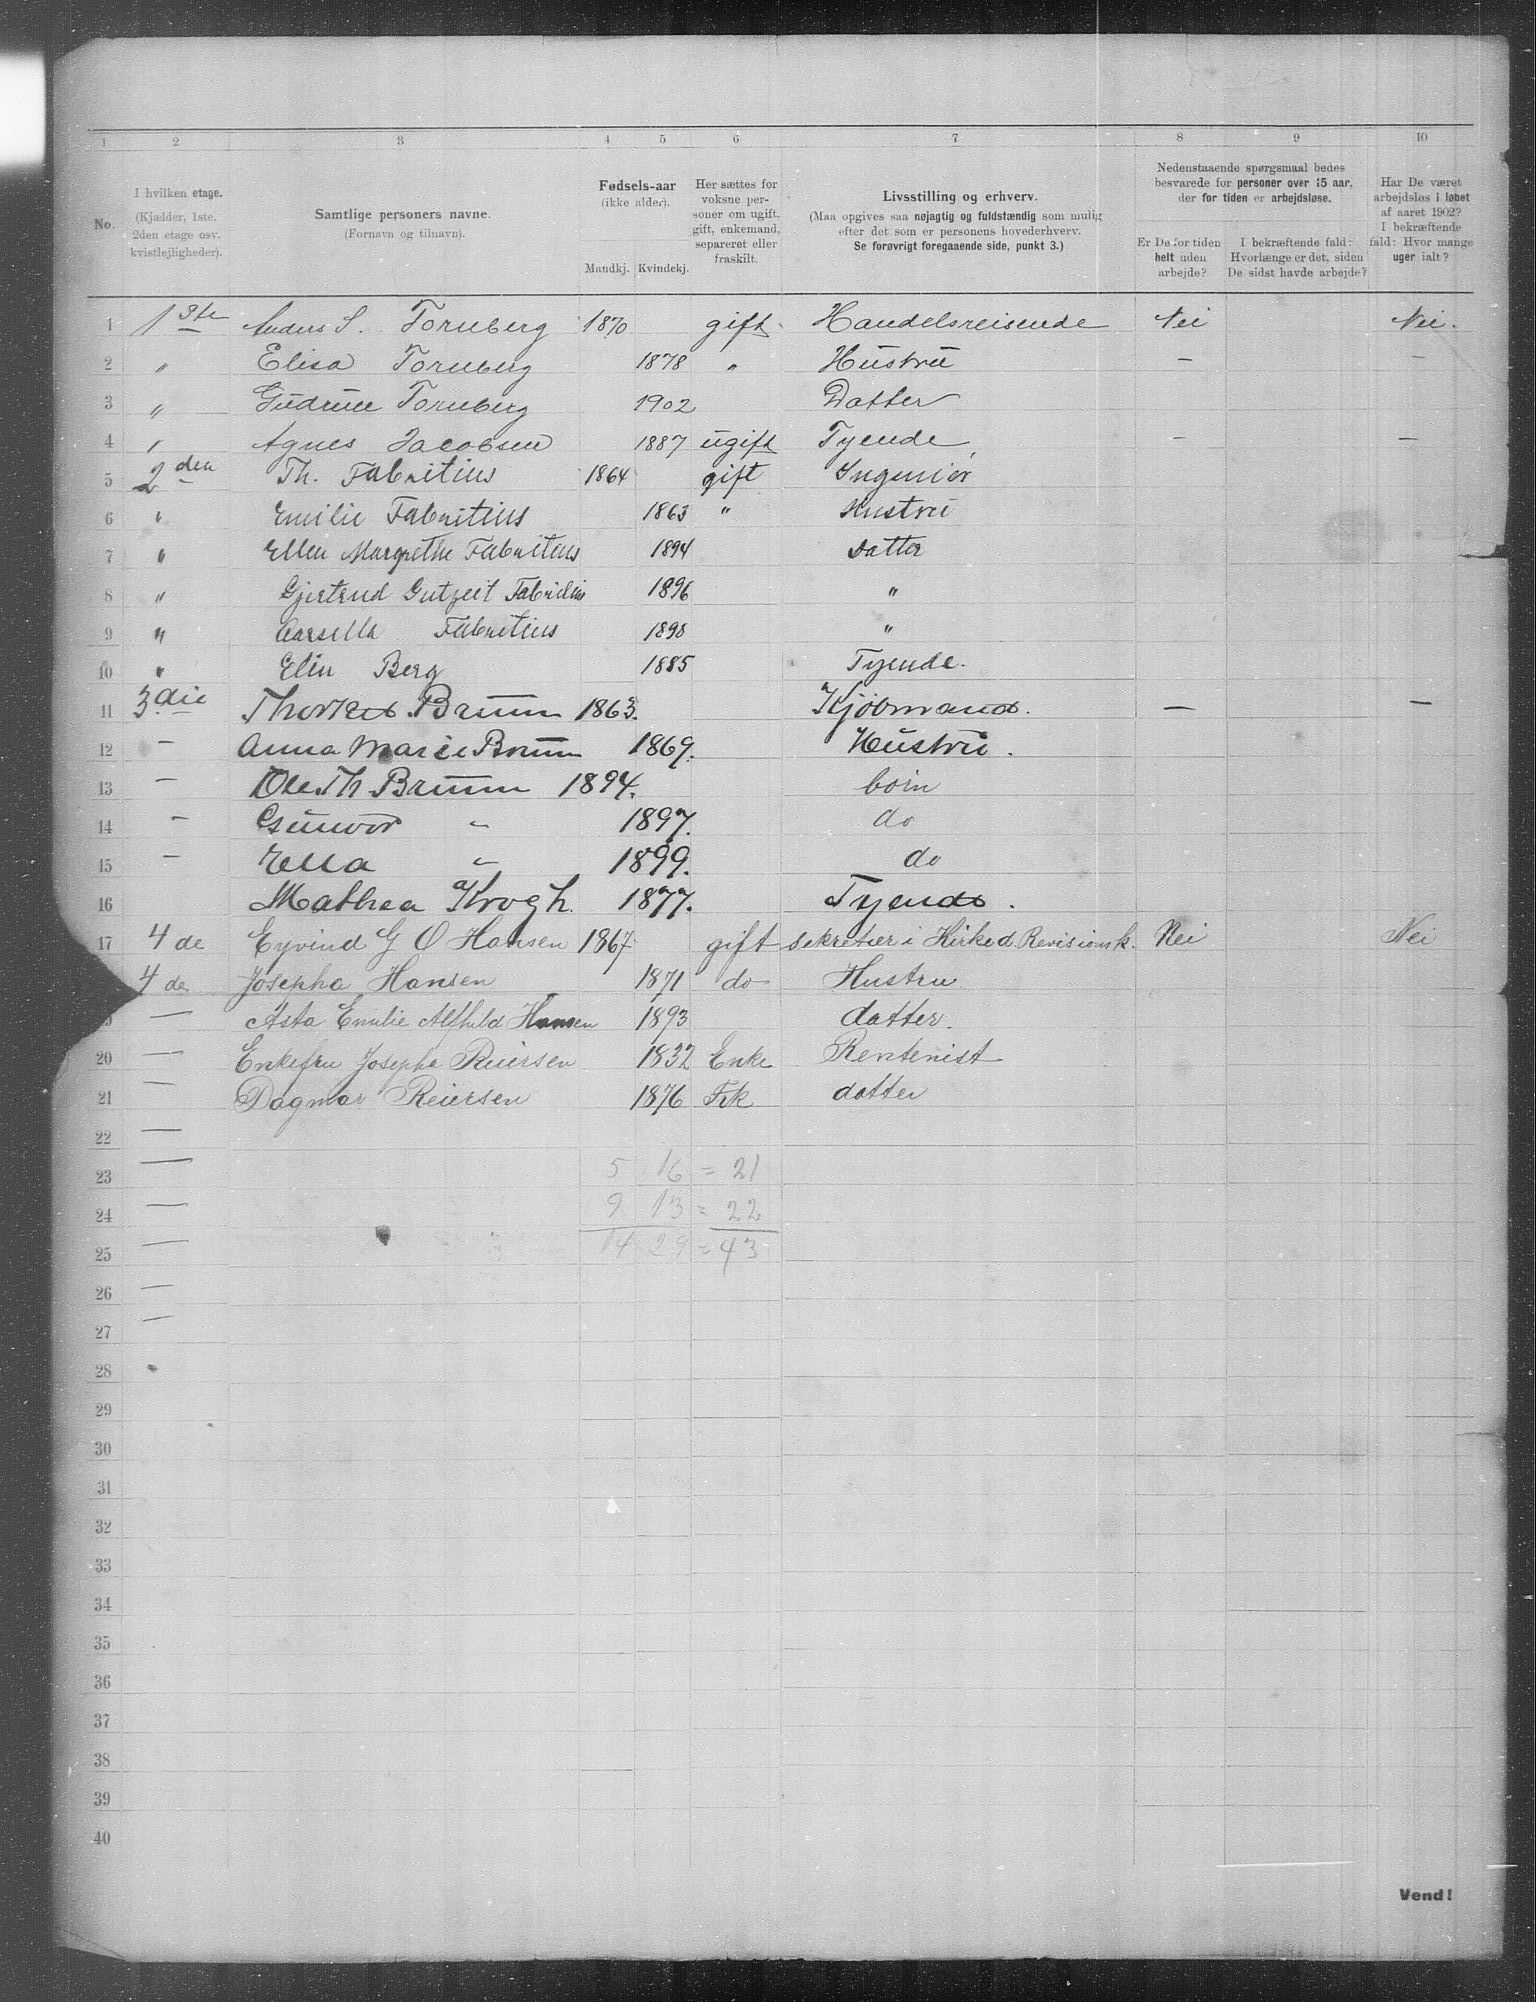 1 2 3 4 5 6 7 8 9 10
No.
I hvilken etage.
(Kjælder, 1ste. 2den etage osv. kvistlejligheder).
Samtlige personers navne.
(Fornavn og tilnavn).
Fødsels-aar
(ikke alder).
Mandkj. Kvindekj.
Her sættes for voksne personer om ugift, gift, enkemand, separeret eller fraskilt.
Livsstilling og erhverv.
(Maa opgives saa nøjagtig og fuldstændig som mulig efter det som er personens hovederhverv.
Se forøvrigt foregaaende side, punkt 3.)
Nedenstaaende spørgsmaal bedes besvarede for personer over 15 aar, der for tiden er arbejdsløse.
Er De for tiden helt uden arbejde?
I bekræftende fald: Hvorlænge er det, siden De sidst havde arbejde?
Har De været arbejdsløs i løbet af aaret 1902? I bekræftende fald: Hvor mange uger ialt?
1 1ste Anders S. Fornberg 1870 gift Handelsreisende Nei Nei.
2 " Elisa Fornberg 1878 " Hustru – –
3 " Gudrun Fornberg 1902 Datter
4 " Agnes Jacobsen 1887 ugift Tyende – –
5 2den Th. Fabritius 1864 gift Ingeniør
6 " Emilie Fabritius 1863 " Hustru
7 " Ellen Margrethe Fabritius 1894 Datter
8 " Gjertrud Gutzeit Fabritius 1896 "
9 " Fabritius 1898 "
10 " Elin Berg 1885 Tyende.
11 3die Bruun 1863. Kjöbmand. – –
12 – Anna Marie Bruun 1869. Hustru.
13 – Ole Th Bruun 1894. born
14 – Gunvor " 1897. do
15 – Ella " 1899. do
16 Mathea Krogh. 1877. Tyende.
17 4de Eyvind G O Hansen 1867 gift sekretær i Kirked. Revisionsk. Nei Nei
4de Josepha Hansen 1871 do Hustru
— Asta Emilie Alfhild Hansen 1893 datter.
20 — Enkefru Josepha Reiersen 1832 Enke Rentenist
21 — Dagmar Reiersen 1876 Frk datter
22 —
23 — 5 16 = 21
24 — 9 13 = 22
25 — 14 29 = 43
26 —
27 —
28
29
30
31
32
33
34
35
36
37
38
39
40
Vend!